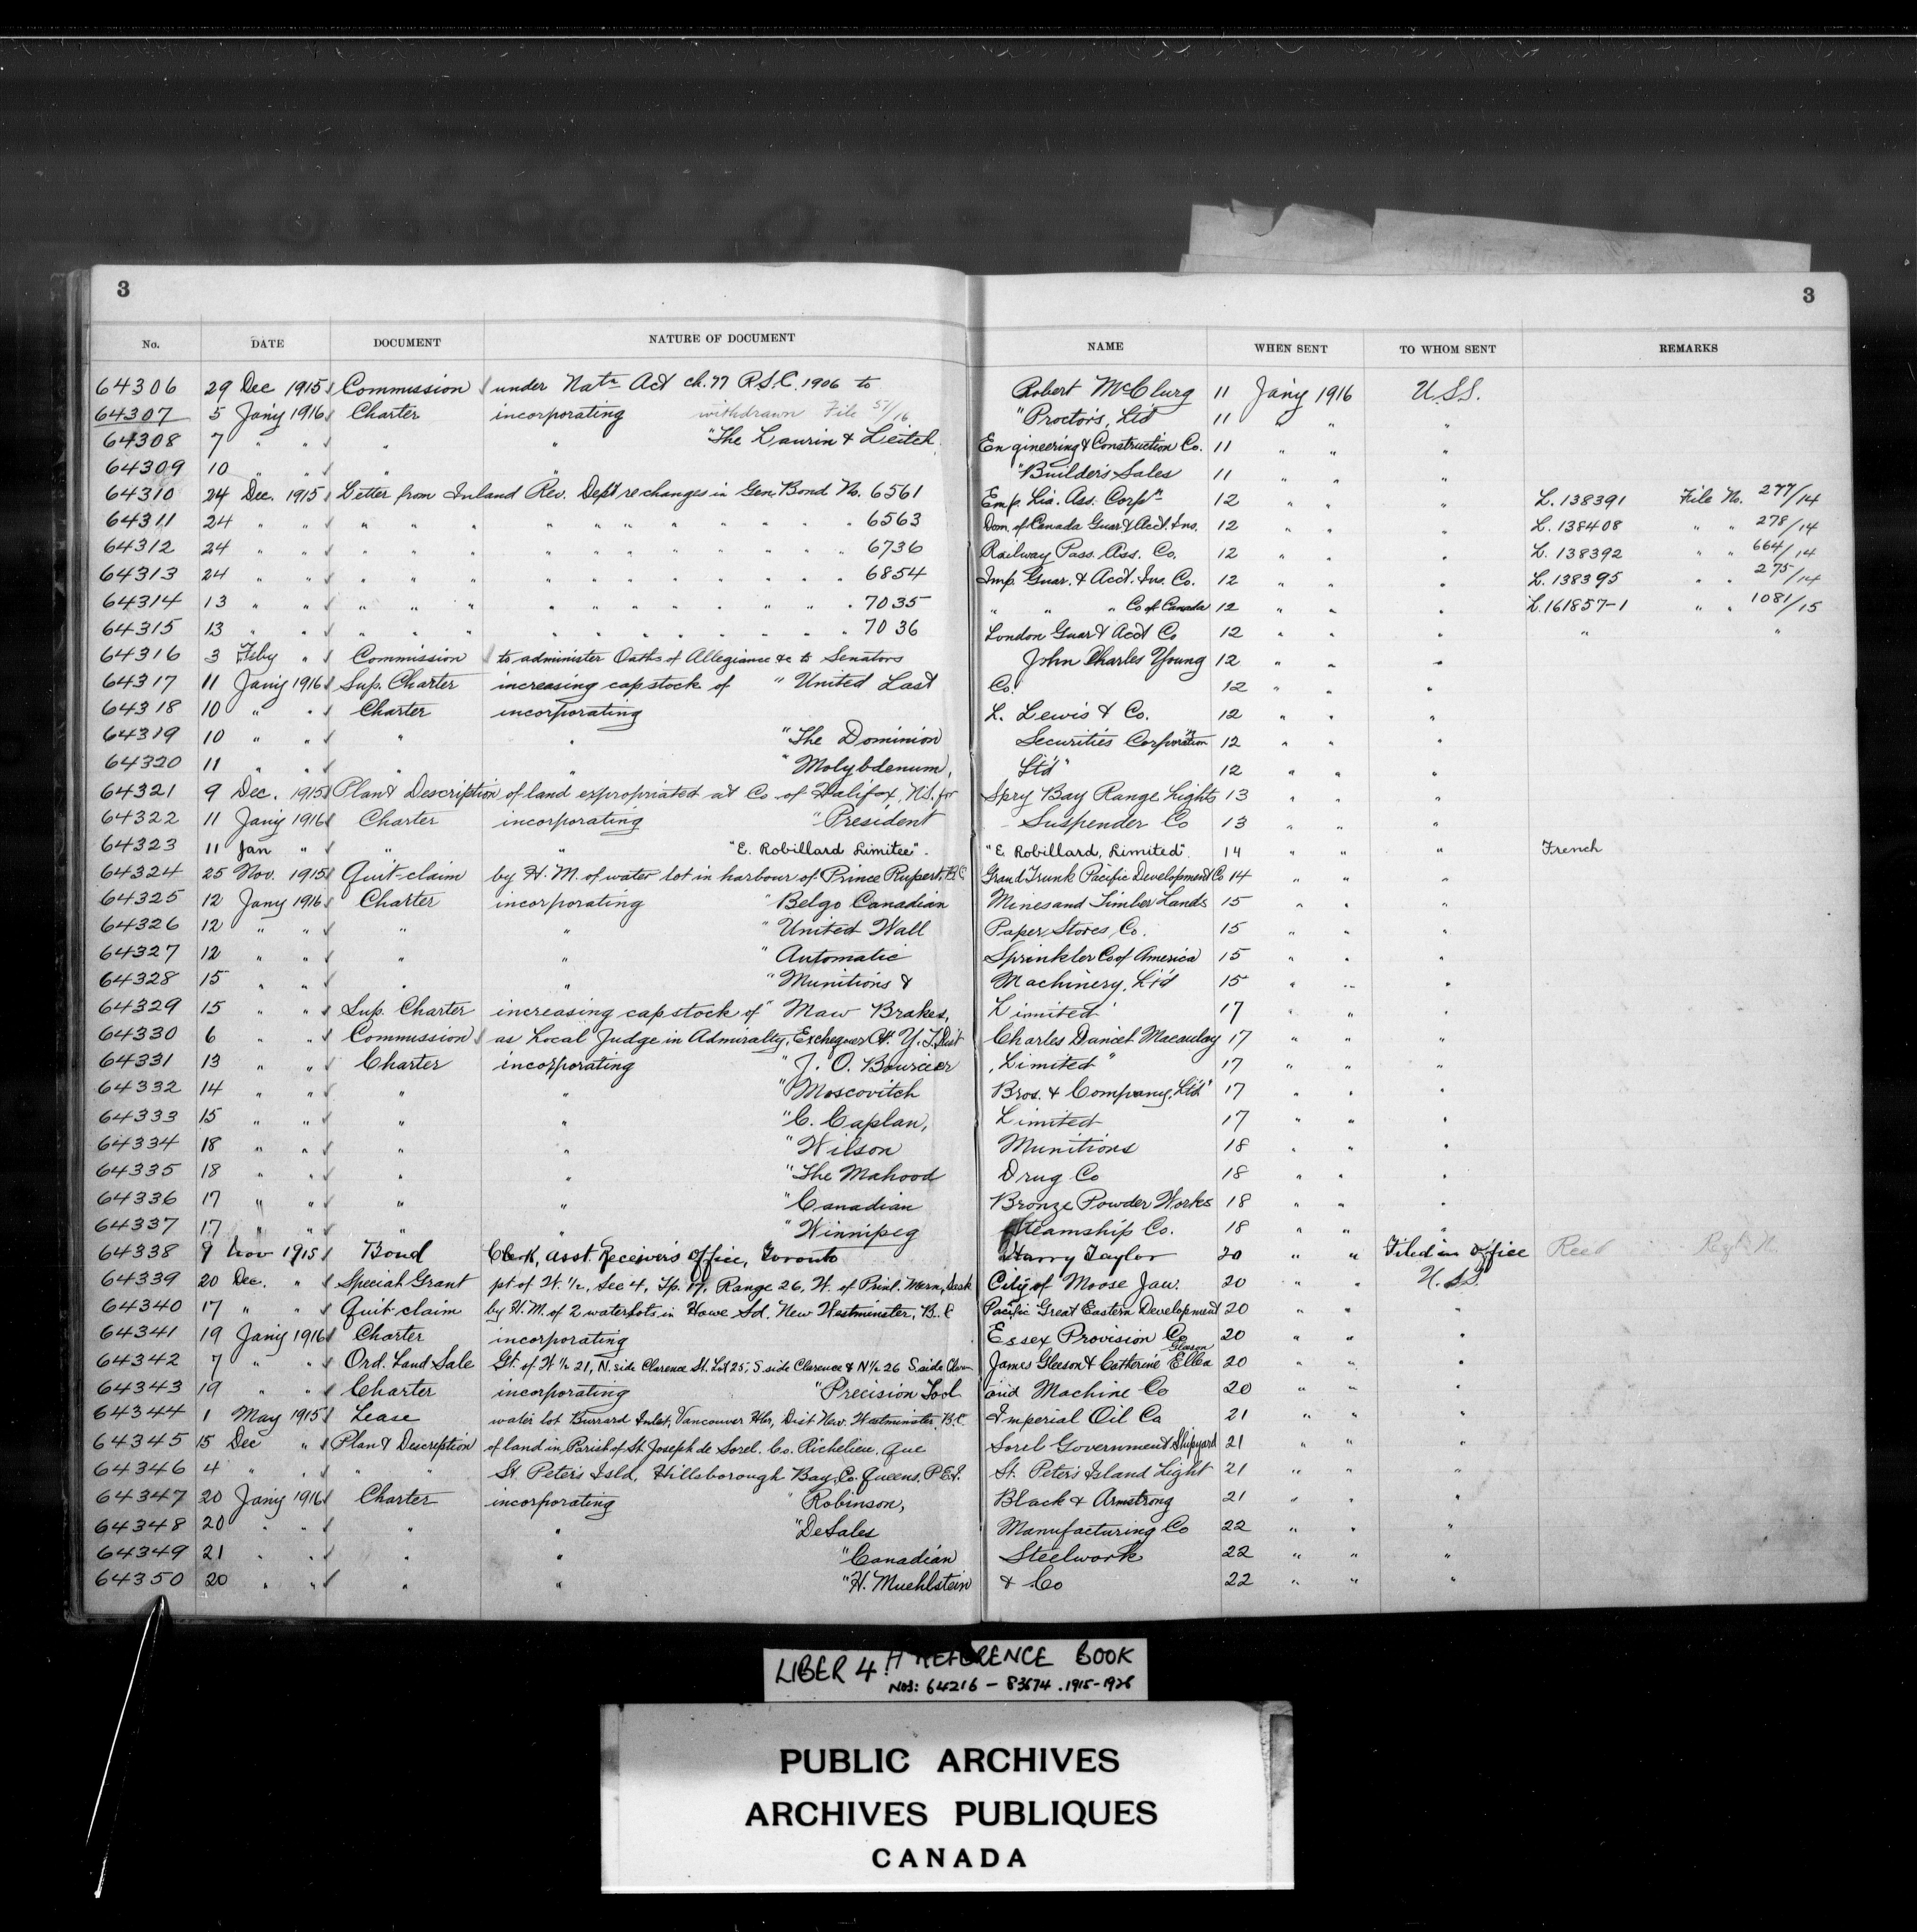 3 3
No. DATE DOCUMENT NATURE OF DOCUMENT NAME WHEN SENT TO WHOM SENT REMARKS
64306 29 Dec 1915 Commission under Natn Act ch. 77 R.S.C. 1906 to Robert McClurg 11 Jany 1916 U.S.S.
64307 5 Jany 1916 Charter incorporating withdrawn File 51/16 "Proctor's, Ltd 11 " " "
64308 7 " " " " "The Laurin & Leitch Engineering & Construction Co. 11 " " "
64309 10 " " " " "Builder's Sales 11 " " "
64310 24 Dec. 1915 Letter from Inland Rev. Dept re changes in Gen. Bond No. 6561 Emp. Lia. Ass. Corpn 12 " " " L. 138391 File No. 277/14
64311 24 " " " " " " " " " " " " " 6563 Dom. of Canada Guar & Acct. Ins. 12 " " " L. 138408 " " 278/14
64312 24 " " " " " " " " " " " " " 6736 Railway Pass. Ass. Co. 12 " " " L. 138392 " " 664/14
64313 24 " " " " " " " " " " " " " 6854 Imp. Guar. & Acct. Ins. Co. 12 " " " L. 138395 " " 275/14
64314 13 " " " " " " " " " " " " " 7035 " " " Co of Canada 12 " " " L. 161857-1 " " 1081/15
64315 13 " " " " " " " " " " " " " 7036 London Guar & Acct Co 12 " " " " "
64316 3 Feby " Commission to administer Oaths of Allegiance &c to Senators John Charles Young 12 " " "
64317 11 Jany 1916 Sup. Charter increasing cap stock of "United Last Co. 12 " " "
64318 10 " " Charter incorporating L. Lewis & Co. 12 " " "
64319 10 " " " " "The Dominion Securities Corporation 12 " " "
64320 11 " " " " "Molybdenum, Ltd" 12 " " "
64321 9 Dec. 1915 Plan & Description of land expropriated at Co of Halifax, N.S. for Spry Bay Range Lights 13 " " "
64322 11 Jany 1916 Charter incorporating "President Suspender Co 13 " " "
64323 11 Jan " " " "E. Robillard Limitee". "E. Robillard, Limited". 14 " " " French
64324 25 Nov. 1915 Quit-claim by H.M. of water lot in harbour of Prince Rupert, B.C. Grand Trunk Pacific Development Co 14 " " "
64325 12 Jany 1916 Charter incorporating "Belgo Canadian Mines and Timber Lands 15 " " "
64326 12 " " " " "United Wall Paper Stores Co. 15 " " "
64327 12 " " " " "Automatic Sprinkler Co of America 15 " " "
64328 15 " " " " "Munitions & Machinery, Ltd 15 " " "
64329 15 " " Sup. Charter increasing cap stock of "Maw Brakes, Limited 17 " " "
64330 6 " " Commission as Local Judge in Admiralty, Exchequer Ct. Y. T. Dist Charles Daniel Macaulay 17 " " "
64331 13 " " Charter incorporating "J. O. Bourcier, Limited" 17 " " "
64332 14 " " " " "Moscovitch Bros. & Company, Ltd" 17 " " "
64333 15 " " " " "C. Caplan, Limited 17 " " "
64334 18 " " " " "Wilson Munitions 18 " " "
64335 18 " " " " "The Mahood Drug Co 18 " " "
64336 17 " " " " "Canadian Bronze Powder Works 18 " " "
64337 17 " " " " "Winnipeg Steamship Co. 18 " " "
64338 9 Nov 1915 Bond Clerk, Asst Receiver's Office, Toronto Harry Taylor 20 " " Filed in Office
64339 20 Dec. " Special Grant pt. of W. 1/2, Sec 4, Tp. 17, Range 26, W. of Prinl. Mern, Sask City of Moose Jaw. 20 " " U.S.S.
64340 17 " " Quit-claim by H.M. of 2 water lots in Howe Sd. New Westminster, B.C Pacific Great Eastern Development 20 " " "
64341 19 Jany 1916 Charter incorporating Essex Provision Co 20 " " "
64342 7 " " Ord. Land Sale Gt. of W 1/2 21, N. side Clarence St. Lot 25, S. side Clarence & N 1/2 26 S. side James Gleeson & Catherine Ellen Gleeson 20 " " "
64343 19 " " Charter incorporating "Precision Tool and Machine Co 20 " " "
64344 1 May 1915 Lease water lot Burrard Inlet, Vancouver Hbr, Dist New Westminster B.C. Imperial Oil Co 21 " " "
64345 15 Dec " Plan & Description of land in Parish of St. Joseph de Sorel, Co. Richelieu, Que Sorel Government Shipyard 21 " " "
64346 4 " " " " St. Peter's Isld, Hillsborough Bay, Co. Queens, P.E.I. St. Peter's Island Light 21 " " "
64347 20 Jany 1916 Charter incorporating "Robinson, Black & Armstrong 21 " " "
64348 20 " " " " "DeSales Manufacturing Co 22 " " "
64349 21 " " " " "Canadian Steelwork 22 " " "
64350 20 " " " " "H. Muehlstein & Co 22 " " "
LIBER 4 H REFERENCE BOOK
NOS: 64216 - 83674 . 1915-1928
PUBLIC ARCHIVES
ARCHIVES PUBLIQUES
CANADA